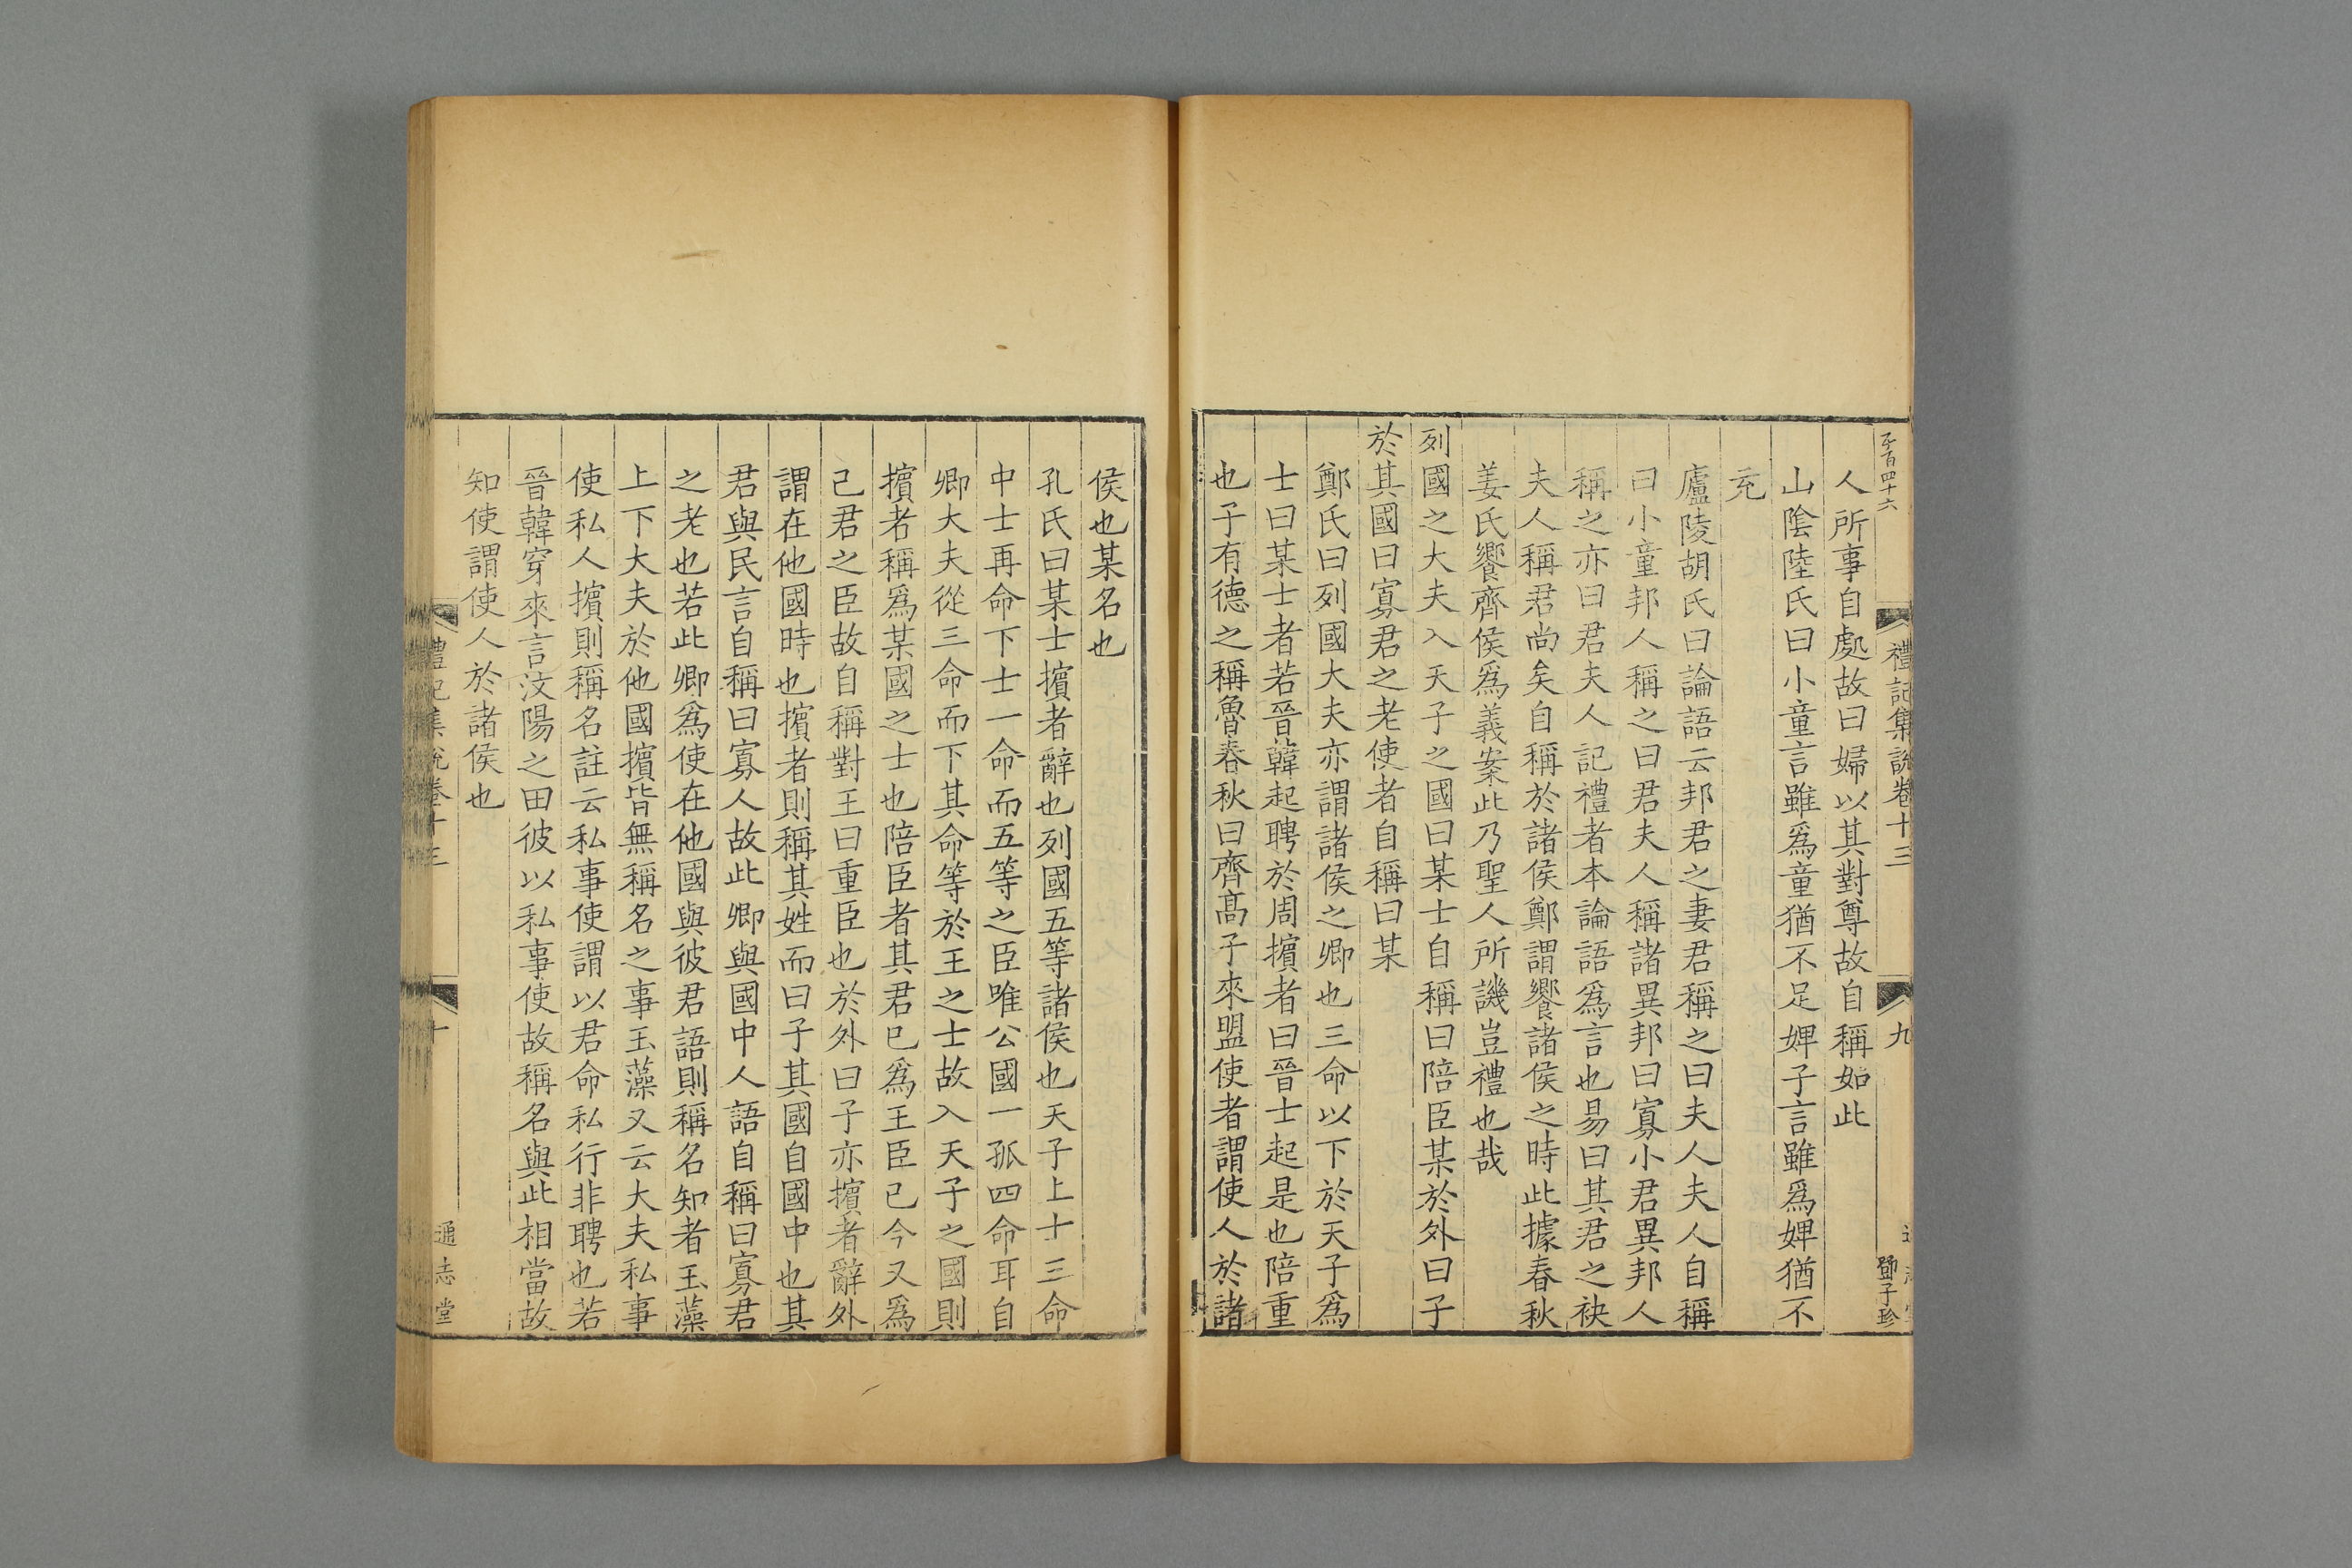 禮記集說卷十三
九
鄧子珍
人所事自處故曰婦以其對尊故自稱如此
山陰陸氏曰小童言雖爲童猶不足婢子言雖爲婢猶不
充
廬陵胡氏曰論語云邦君之妻君稱之曰夫人夫人自稱
曰小童邦人稱之曰君夫人稱諸異邦曰寡小君異邦人
稱之亦曰君夫人記禮者本論語爲言也易曰其君之袂
夫人稱君尚矣自稱於諸侯鄭謂饗諸侯之時此據春秋
姜氏饗齊侯爲義案此乃聖人所譏豈禮也哉
列國之大夫入天子之國曰某士自稱曰陪臣某於外曰子
於其國曰寡君之老使者自稱曰某
鄭氏曰列國大夫亦謂諸侯之卿也三命以下於天子爲
士曰某士者若晉韓起聘於周擯者曰晉士起是也陪重
也子有德之稱魯春秋曰齊髙子來盟使者謂使人於諸
侯也某名也
孔氏曰某士擯者辭也列國五等諸侯也天子上士三命
中士再命下士一命而五等之臣唯公國一孤四命耳自
卿大夫從三命而下其命等於王之士故入天子之國則
擯者稱爲某國之士也陪臣者其君已爲王臣己今又爲
己君之臣故自稱對王曰重臣也於外曰子亦擯者辭外
謂在他國時也擯者則稱其姓而曰子其國自國中也其
君與民言自稱曰寡人故此卿與國中人語自稱曰寡君
之老也若此卿爲使在他國與彼君語則稱名知者玉藻
上下大夫於他國擯皆無稱名之事玉藻又云大夫私事
使私人擯則稱名註云私事使謂以君命私行非聘也若
晉韓穿來言汶陽之田彼以私事使故稱名與此相當故
知使謂使人於諸侯也
禮記集說卷十三
十
通志堂